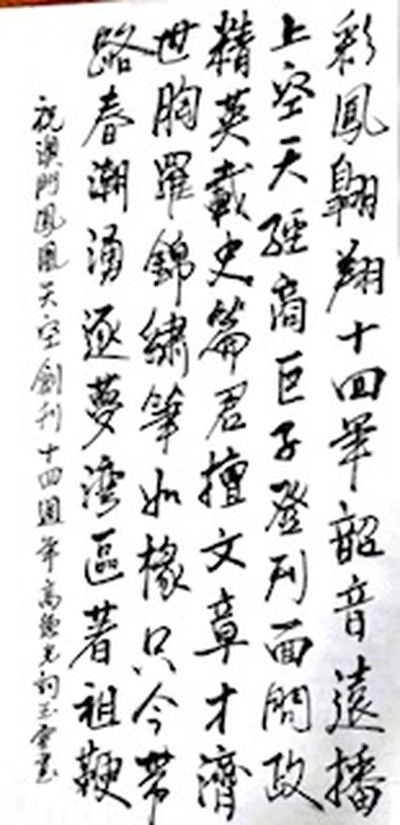 彩鳳翱翔十四年韶音遠播
上空天經商巨子登刊面問政
精英載史篇君擅文章才濟
世胸羅錦繡筆如椽只今帶
路春潮湧逐夢湾區著祖鞭
祝澳門鳳凰天空創刊十四週年高德光詞玉書